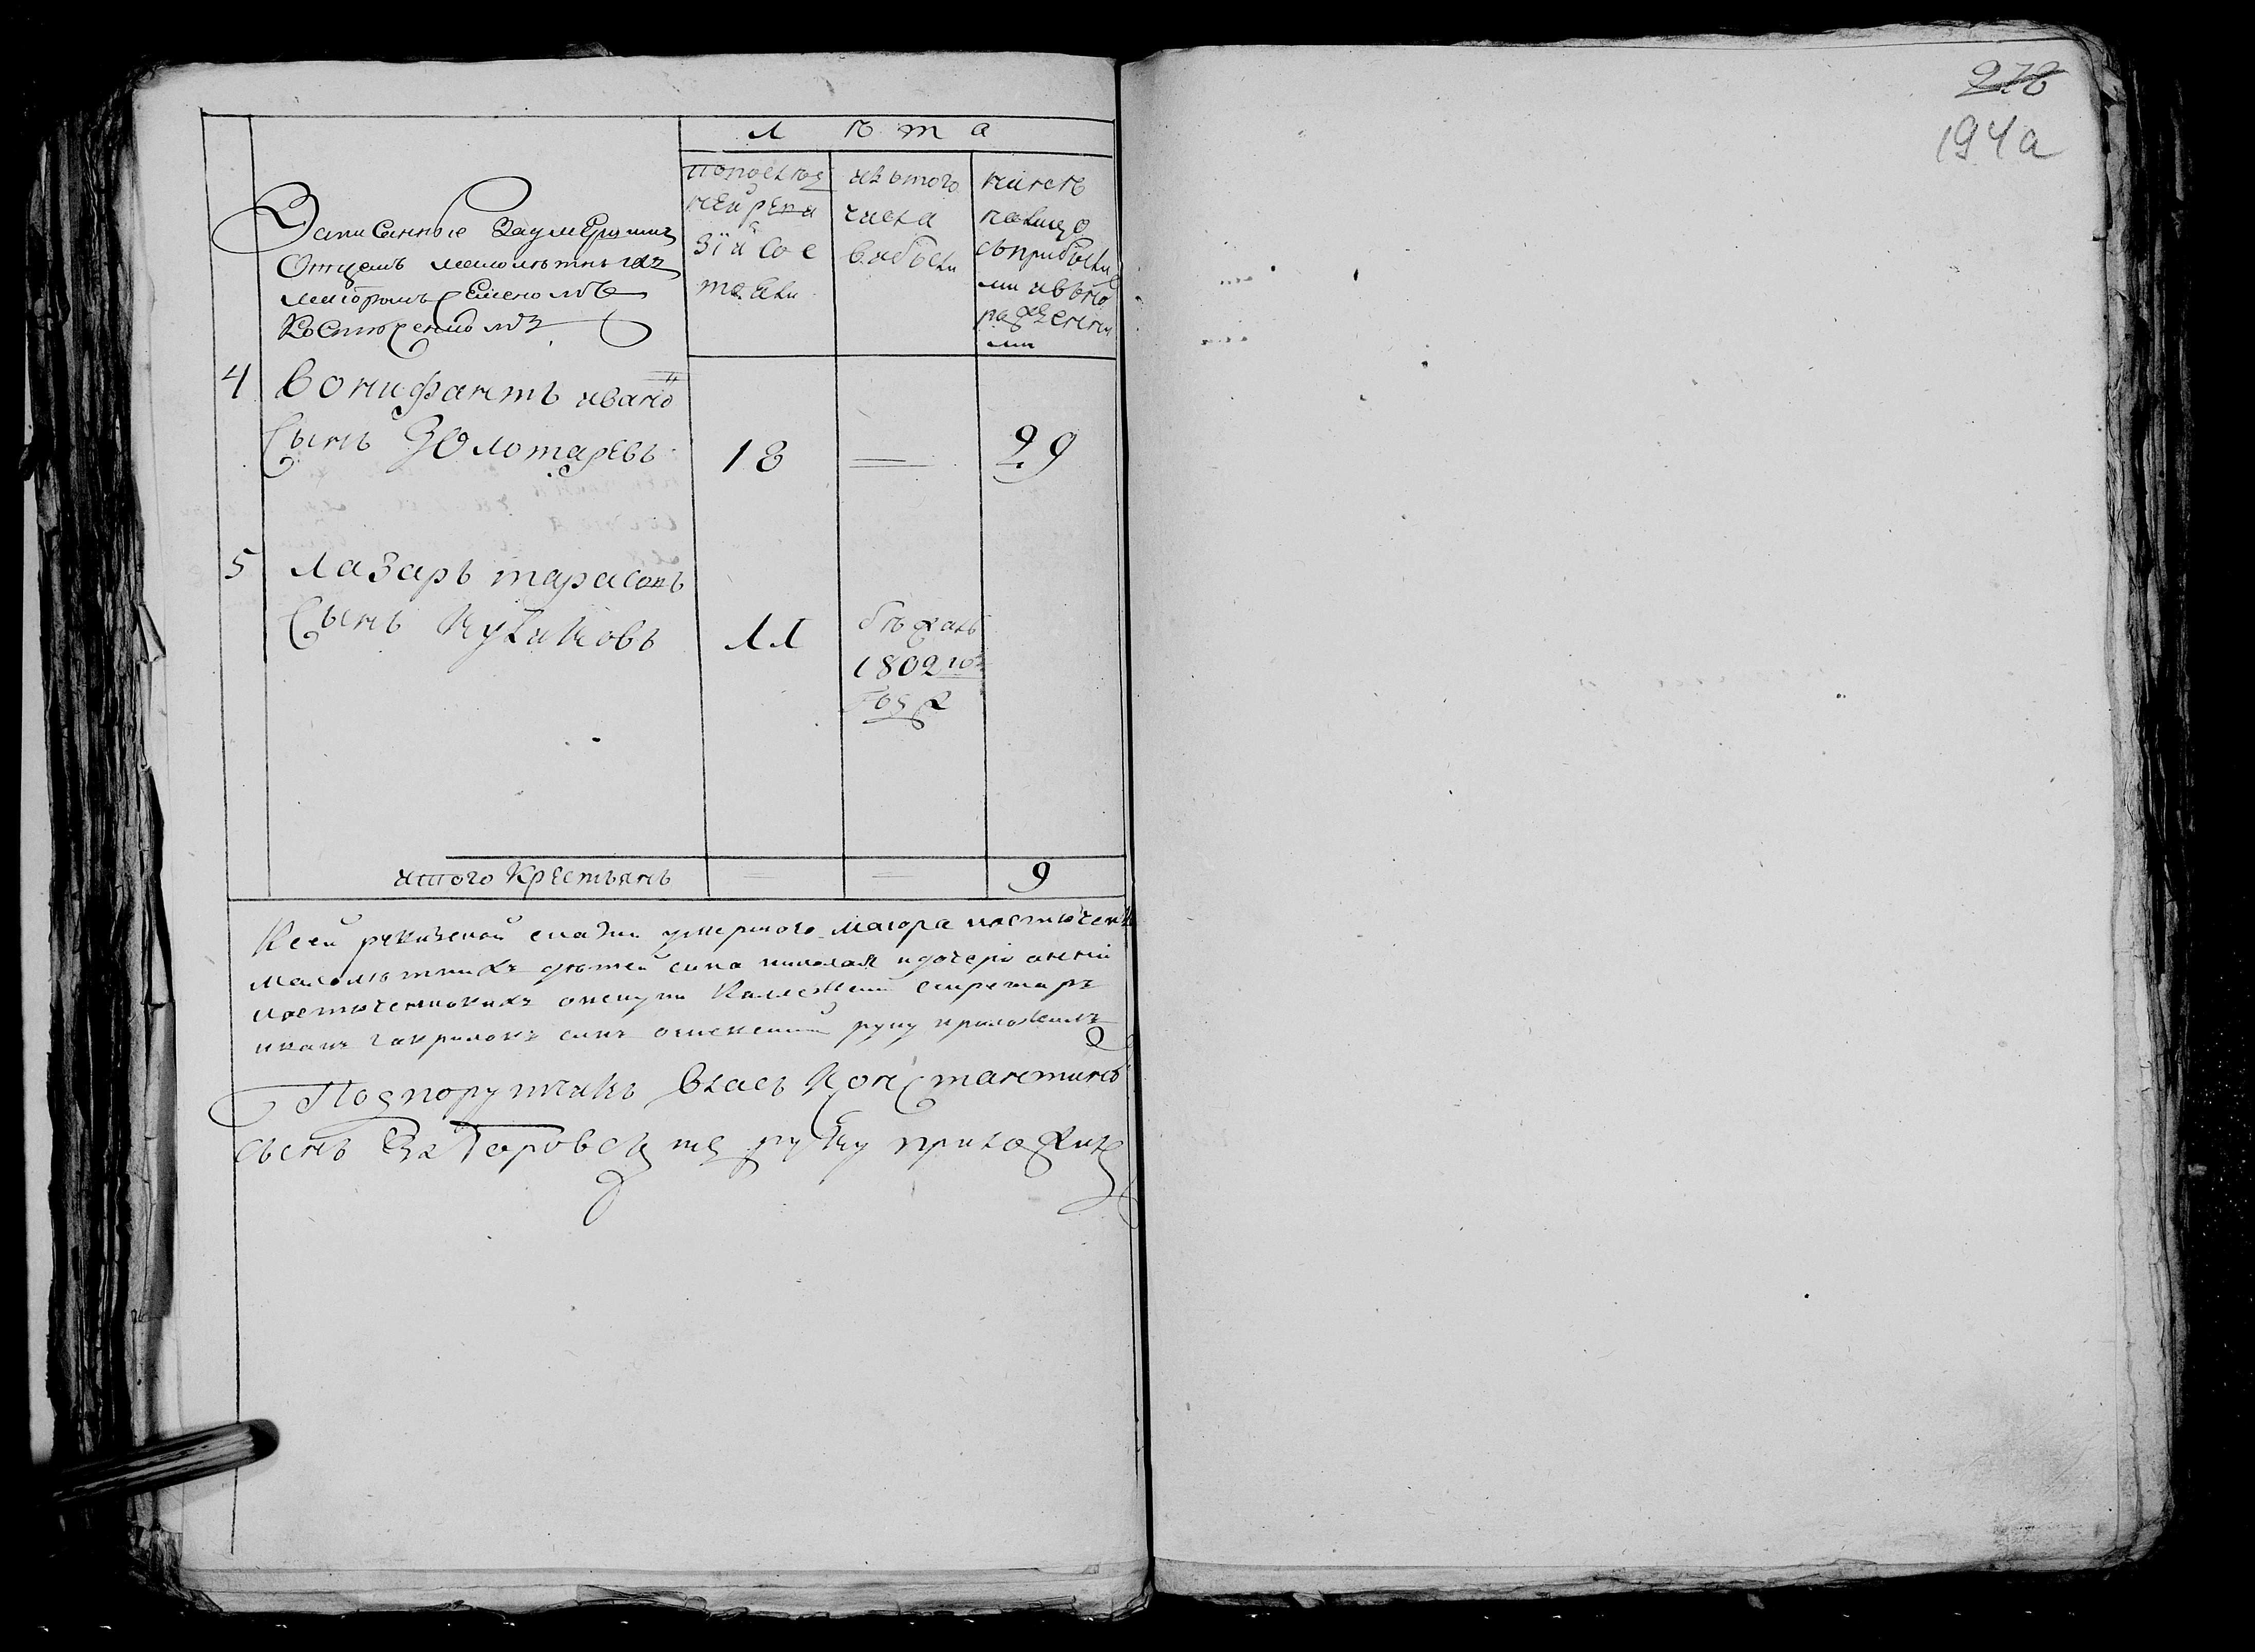 Лѣта
Записанные заумершимъ
Отцемъ малолѣтныхъ
маіоромъ Семеномъ
Костюренкомъ
попослѣд
ней реви
зіи со с
тояли
изътого
числа
выбыли
нынѣ
налицо
съприбылы
ми ивъно
рожденны
ми
4 Вонифантъ ивано
Сынъ Золотаревъ 18 29
5 Лазарь тарасовъ
Сынъ Куликовъ 11
бѣжалъ
1802го
года
итого Крестьянъ 9
Ксей ревизской сказки умершого маіора
малолѣтнихъ дѣтей сина николая идочери
опекунъ Колежский секретарь
иванъ гавриловъ синъ руку приложилъ
Подпорутчикъ Власъ Константинов
сынъ руку приложилъ
278
194а